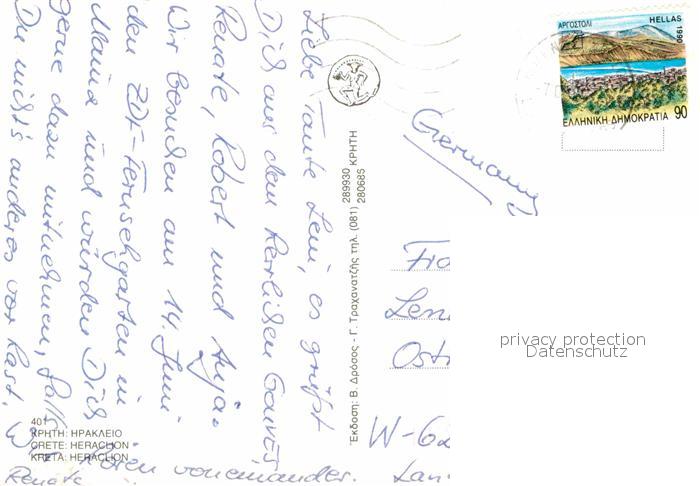 Liebe Tante Leni, es grüßt
Dich aus dem herrlichen Gouves
Renate, Robert und Anja.
Wir besuchen am 14. Juni
den ZDF-Fernsehgarten in
Mainz und würden Dich
gerne dazu mitnehmen, falls
Du nichts anderes vor hast. Wir
hören voneinander.
Renate
401
ΚΡΗΤΗ: ΗΡΑΚΛΕΙΟ
CRETE: HERACLION
KRETA: HERACLION
Έκδοση: Β. Δρόσος - Γ. Τραχανατζής τηλ. (081) 289930 ΚΡΗΤΗ
280685
ΑΡΓΟΣΤΟΛΙ
HELLAS 1990
ΕΛΛΗΝΙΚΗ ΔΗΜΟΚΡΑΤΙΑ 90
Germany
Fra
Leni
Ostr
W-62
Lan
privacy protection
Datenschutz